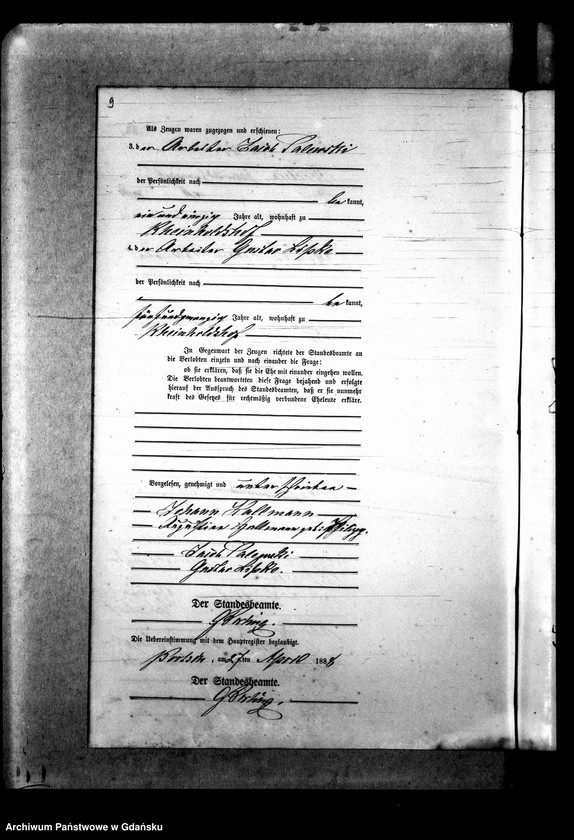 9
Als Zeugen waren zugezogen und erschienen:
3. der Arbeiter Jacob
der Persönlichkeit nach
bekannt,
Jahre alt, wohnhaft zu
Rheinholdshof
4. der Arbeiter Gustav Lipke
der Persönlichkeit nach
bekannt,
fünfundzwanzig Jahre alt, wohnhaft zu
Rheinholdshof
In Gegenwart der Zeugen richtete der Standesbeamte an
die Verlobten einzeln und nach einander die Frage:
ob sie erklären, daß sie die Ehe mit einander eingehen wollen.
Die Verlobten beantworteten diese Frage bejahend und erfolgte
hierauf der Ausspruch des Standesbeamten, daß er sie nunmehr
kraft des Gesetzes für rechtmäßig verbundene Eheleute erkläre.
Vorgelesen, genehmigt und unterschrieben
Johann
geb.
Jacob
Gustav Lipke.
Der Standesbeamte.
Die Uebereinstimmung mit dem Hauptregister beglaubigt.
am 27ten April 188
Der Standesbeamte.
Archiwum Państwowe w Gdańsku